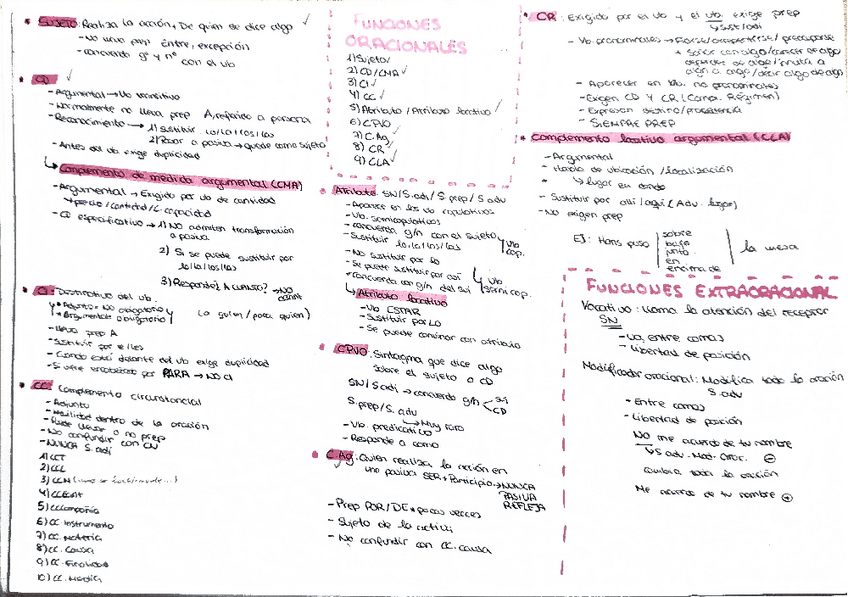 SUJETO: Realiza la acción, De quien se dice algo
- No lleva prep. Entre, excepción
- concuerda gº y nº con el vb
CD
- Argumental → Vb transitivo
- Normalmente no lleva prep A, referido a persona
- Reconocimiento → 1) Sustituir lo/la/los/las
2) Pasar a pasiva → quede como sujeto
- Antes del vb exige duplicidad
Complemento de medida argumental (CMA)
- Argumental → Exigido por vb de cantidad
→ precio/cantidad/c. capacidad
- CD específicativo → 1) No admiten transformación
a pasiva
2) Si se puede sustituir por
lo/la/los/las
3) Responde ¿A CUANTO? → NO
CI: Destinatario del vb.
- Adjunto: No obligatorio
- Argumental: obligatorio
(a quien/para quien)
- Lleva prep A
- Sustituir por e/les
- Cuando está delante del vb exige duplicidad
- Si viene encabezado por PARA → NO CI
CC: Complemento circunstancial
- Adjunto
- Movilidad dentro de la oración
- Puede llevar o no prep
- No confundir con CN
- NUNCA S.adj
1) CCT
2) CCL
3) CCM
4) CCCant
5) CCCompañía
6) CC. Instrumento
7) CC. Materia
8) CC. Causa
9) CC. Finalidad
10) CC. Medio
FUNCIONES
ORACIONALES
1) Sujeto
2) CD/CMA
3) CI
4) CC
5) Atributo/Atributo locativo
6) CPVO
7) C.Ag
8) CR
9) CLA
Atributo: SN/S.adj/S prep/S adv
- Aparece en los vb copulativos
- Vb. semicopulativos
- Concuerda g/n con el sujeto
- Sustituir lo/la/los/las
Vb cop.
- No sustituir por lo
- Se puede sustituir por así
- Concuerda con g/n del suj
Vb semicop.
Atributo locativo
- Vb ESTAR
- Sustituir por LO
- Se puede combinar con atributo
CPVO: Sintagma que dice algo
sobre el sujeto o CD
SN/S.adj → concuerda g/n < suj CD
S.prep/S.adv
→ Muy raro
- Vb. predicativo
- Responde a como
C Ag: Quien realiza la acción en
una pasiva SER + Participio → NUNCA
PASIVA
REFLEJA
- Prep POR/DE * pocas veces
- Sujeto de la activa
- No confundir con CC. causa
CR: Exigido por el vb y el vb exige prep
- Aparecer en vb. no pronominales
- Exigen CD y CR (Comp. Régimen)
- Expresan destino/procedencia
- SIEMPRE PREP
Complemento locativo argumental (CLA)
- Argumental
- Habla de ubicación/localización
→ lugar en donde
- Sustituir por allí/aquí (Adv. lugar)
- No exigen prep
EJ: Hans puso | sobre bajo junto en encima de | la mesa
FUNCIONES EXTRAORACIONAL
Vocativo: Llama la atención del receptor
SN
- Va entre comas
- Libertad de posición
Modificador oracional: Modifica toda la oración
S.adv
- Entre comas
- Libertad de posición
NO me acuerdo de tu nombre
S adv. Mod. Orac. ⊖
Cambia toda la oración
Me acuerdo de tu nombre ⊕